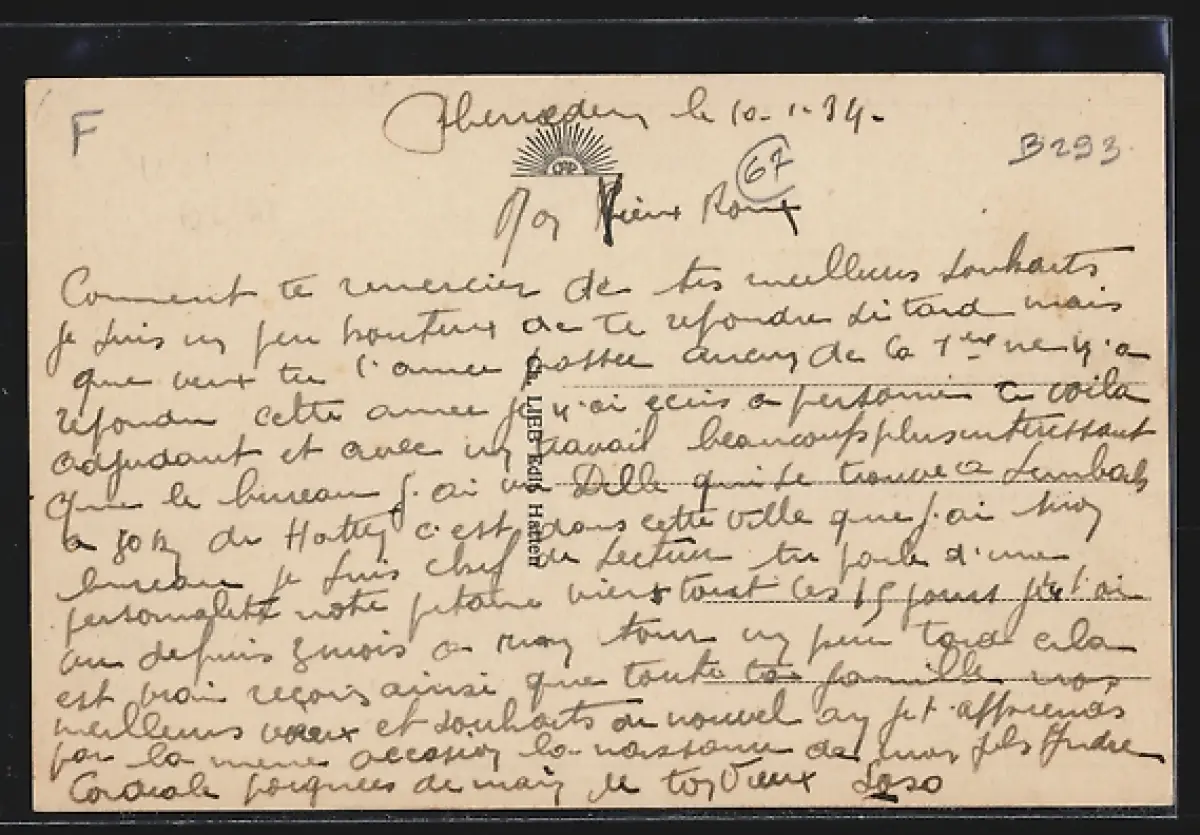 F
le 10-1-34-
B293
67
CAP
Mon Vieux Roux
Comment te remercier de tes meilleurs souhaits
je suis un peu honteux de te repondre si tard mais
que veux tu l'annee passee aucun de la 1ere ne m'a
repondu cette annee je n'ai ecris a personne me voila
adjudant et avec un travail beaucoup plus interessant
que le bureau j'ai un Delle qui se trouve a Lembach
a 30 km de Hatten c'est dans cette ville que j'ai mon
bureau je suis chef de secteur tu parle d'une
personalite notre pitaine viens tout les 15 jours je l'ai
vu depuis 3 mois a mon tour un peu tard cela
est vrai reçois ainsi que toute ta famille nos
meilleurs voeux et souhaits de nouvel an je t'apprends
par la meme occasion la naissance de mon fils Andre
Cordiale poignees de main de ton Vieux
Ch. LIEB Edit. Hatten